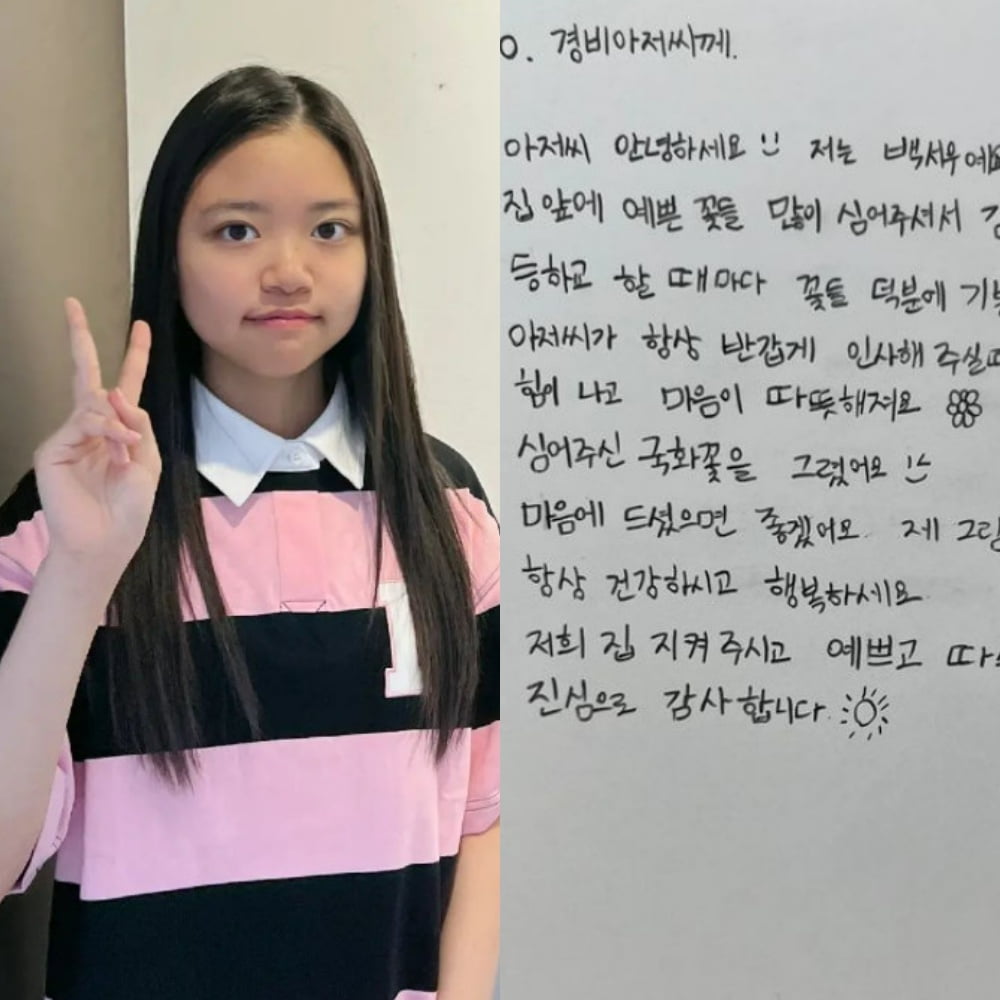 O. 경비아저씨께.
아저씨 안녕하세요 저는 백서우예요
집 앞에 예쁜 꽃들 많이 심어주셔서
등하교 할 때마다 꽃들 덕분에
아저씨가 항상 반갑게 인사해 주실
힘이 나고 마음이 따뜻해져요
심어주신 국화꽃을 그렸어요
마음에 드셨으면 좋겠어요. 제
항상 건강하시고 행복하세요
저희 집 지켜 주시고 예쁘고
진심으로 감사합니다.
1